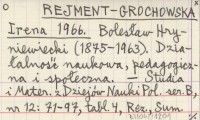 REJMENT-GROCHOWSKA
Irena 1966. Bolesław Hry-
niewiecki (1875-1963). Dzia-
łalność naukowa, pedagogicz-
na i społeczna. — Studia
i Mater. z Dziejów Nauki Pol. ser. B,
nr 12: 71-97, tabl. 4, Rez., Sum.